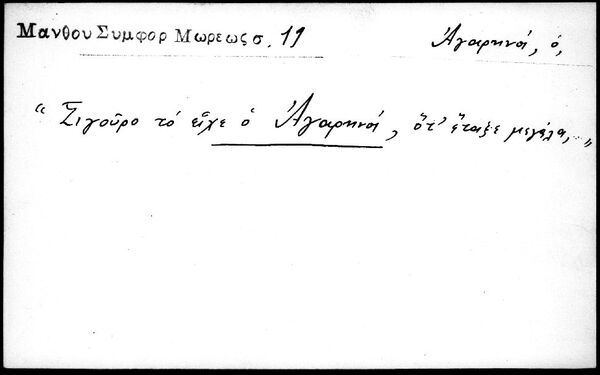 Μανθου Συμφορ Μωρεως σ. 11
Ἀγαρηνοί, ὁ,
“ Σιγοῦρο τό εἶχε ὁ Ἀγαρηνοί, ὅτ' ἔταξε μεγάλα, „